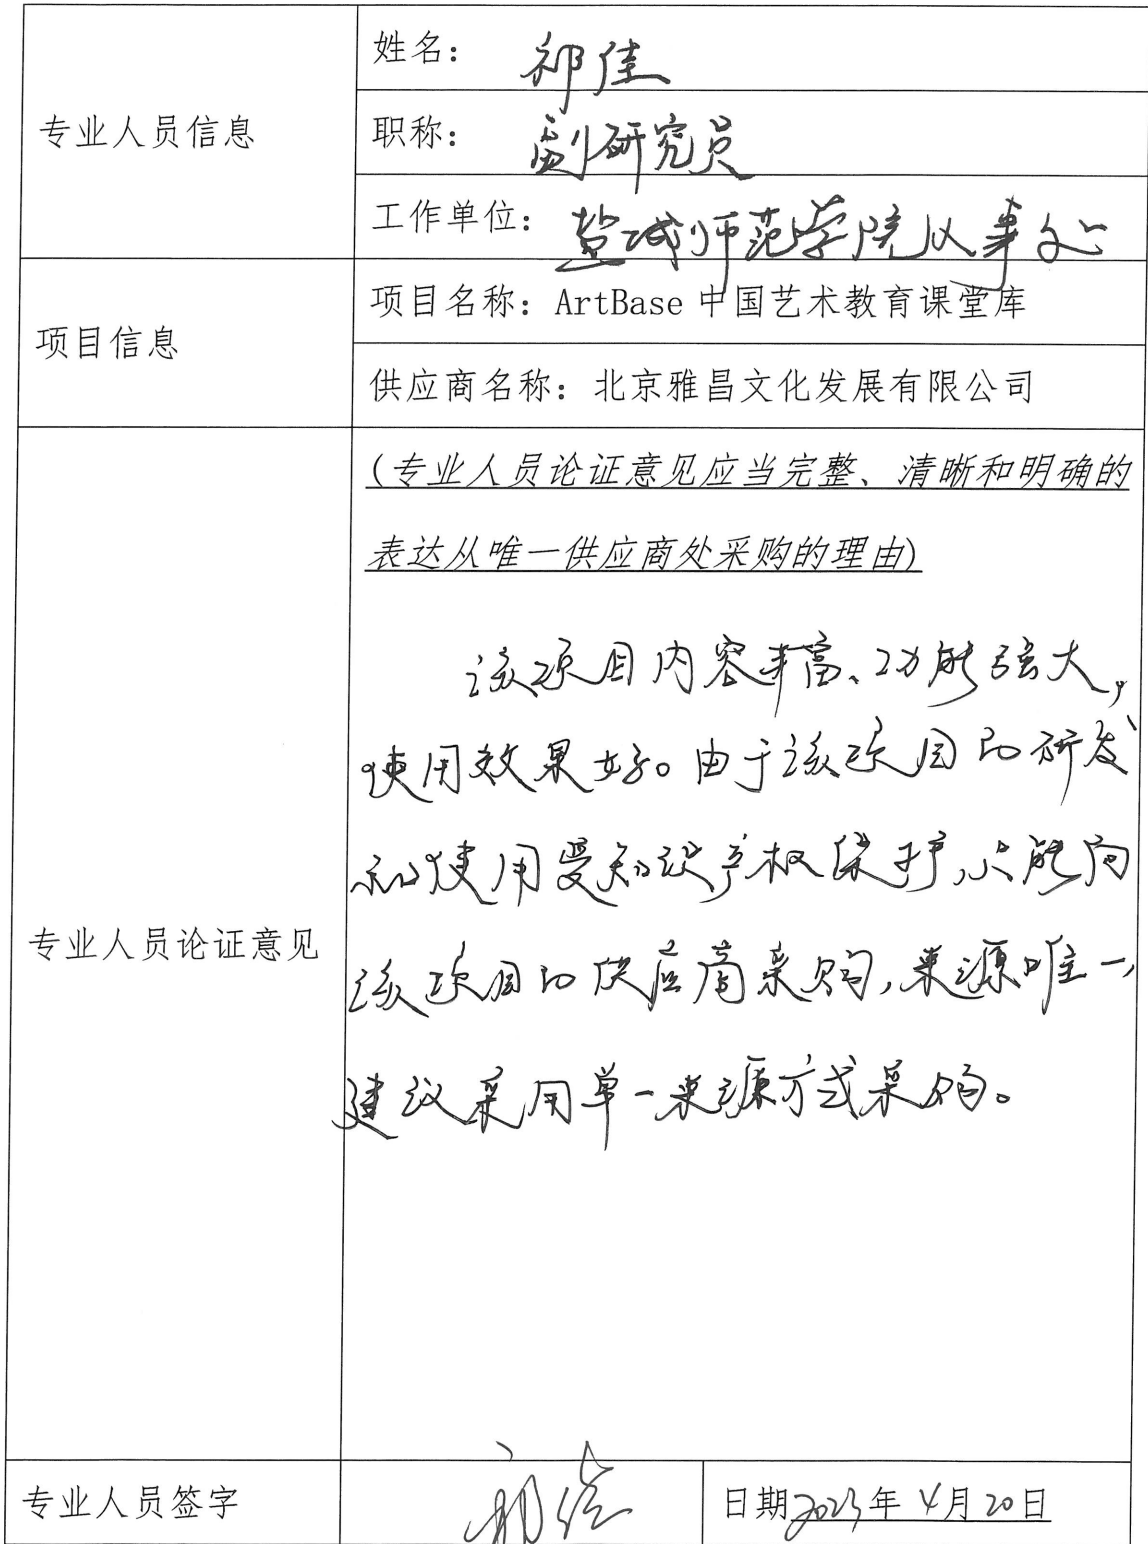 专业人员信息
姓名：祁佳
职称：副研究员
工作单位：盐城师范学院人事处
项目信息
项目名称：ArtBase 中国艺术教育课堂库
供应商名称：北京雅昌文化发展有限公司
专业人员论证意见
(专业人员论证意见应当完整、清晰和明确的
表达从唯一供应商处采购的理由)
该项目内容丰富、功能强大，
使用效果好。由于该项目的研发
和使用受知识产权保护，只能向
该项目的供应商采购，来源唯一，
建议采用单一来源方式采购。
专业人员签字
祁佳
日期2023年4月20日